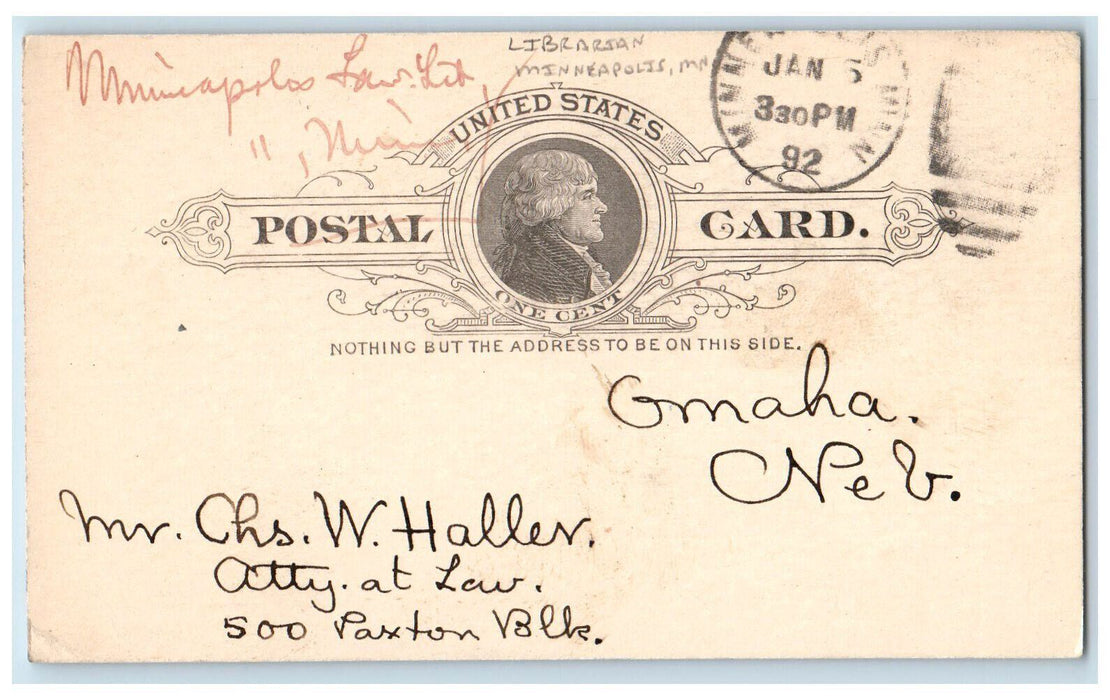 Minneapolis Law. Lib,
", Minn
LIBRARIAN
MINNEAPOLIS, MN
MINNEAPOLIS MINN
JAN 5
330PM
92
UNITED STATES
POSTAL CARD.
ONE CENT
NOTHING BUT THE ADDRESS TO BE ON THIS SIDE.
Omaha.
Neb.
Mr. Chs. W. Haller.
Atty. at Law.
500 Paxton Blk.